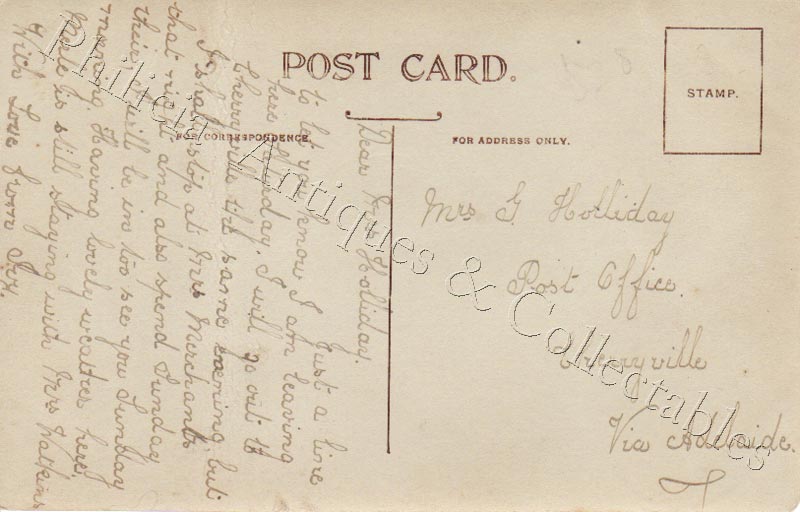 POST CARD.
STAMP.
FOR CORRESPONDENCE.
FOR ADDRESS ONLY.
Dear Mrs Holliday.
Just a line
to let you know I am leaving
here Saturday. I will go out to
Cherryville the same evening, but
I shall stop at Mrs Merchants
that night and also spend Sunday
their, I will be in to see you Sunday
morning. Having lovely weather here,
Merle is still staying with Mrs Watkins
With Love from Ivy.
Mrs G Holliday
Post Office.
Cherryville
Via Adelaide.
Philicia Antiques & Collectables